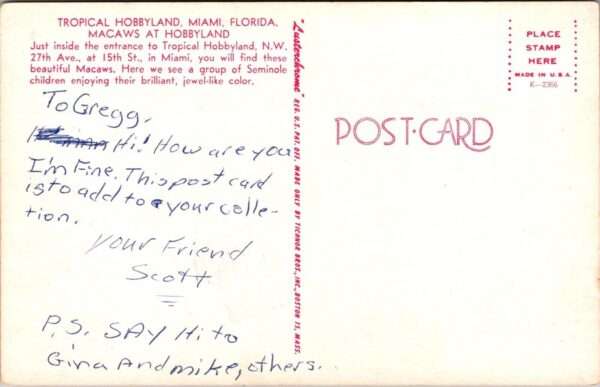 TROPICAL HOBBYLAND, MIAMI, FLORIDA.
MACAWS AT HOBBYLAND
Just inside the entrance to Tropical Hobbyland, N.W.
27th Ave., at 15th St., in Miami, you will find these
beautiful Macaws. Here we see a group of Seminole
children enjoying their brilliant, jewel-like color.
To Gregg,
Hi! How are you
I'm Fine. This post card
is to add to your colle-
tion.
your Friend
Scott
P.S. SAY Hi to
Gina And mike, others.
"Lusterchrome" REG. U.S. PAT. OFF. MADE ONLY BY TICHNOR BROS., INC., BOSTON 15, MASS.
POST-CARD
PLACE
STAMP
HERE
MADE IN U.S.A.
K-2366